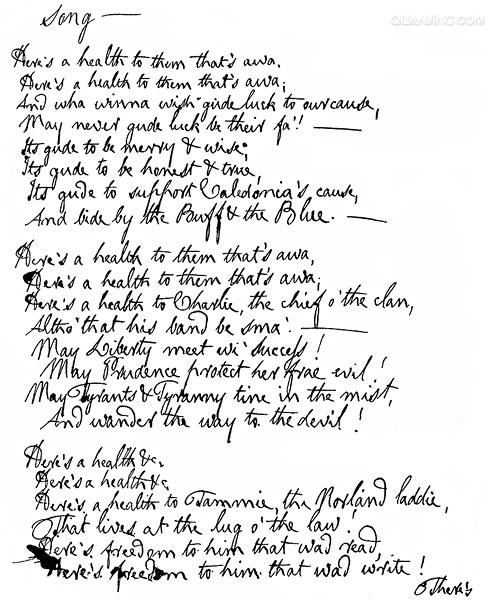 QUANJING.COM
Song —
Here's a health to them that's awa,
Here's a health to them that's awa;
And wha winna wish gude luck to our cause,
May never gude luck be their fa'! —
Its gude to be merry & wise;
Its gude to be honest & true,
Its gude to support Caledonia's cause,
And bide by the Buff & the Blue. —
Here's a health to them that's awa,
Here's a health to them that's awa;
Here's a health to Charlie, the chief o' the clan,
Altho' that his band be sma'. —
May Liberty meet wi' success!
May Prudence protect her frae evil!
May Tyrants & Tyranny tine in the mist,
And wander the way to the devil!
Here's a health &c.
Here's a health &c.
Here's a health to Tammie, the Norland laddie,
That lives at the lug o' the law!
Here's freedom to him that wad read,
Here's freedom to him that wad write!
There's